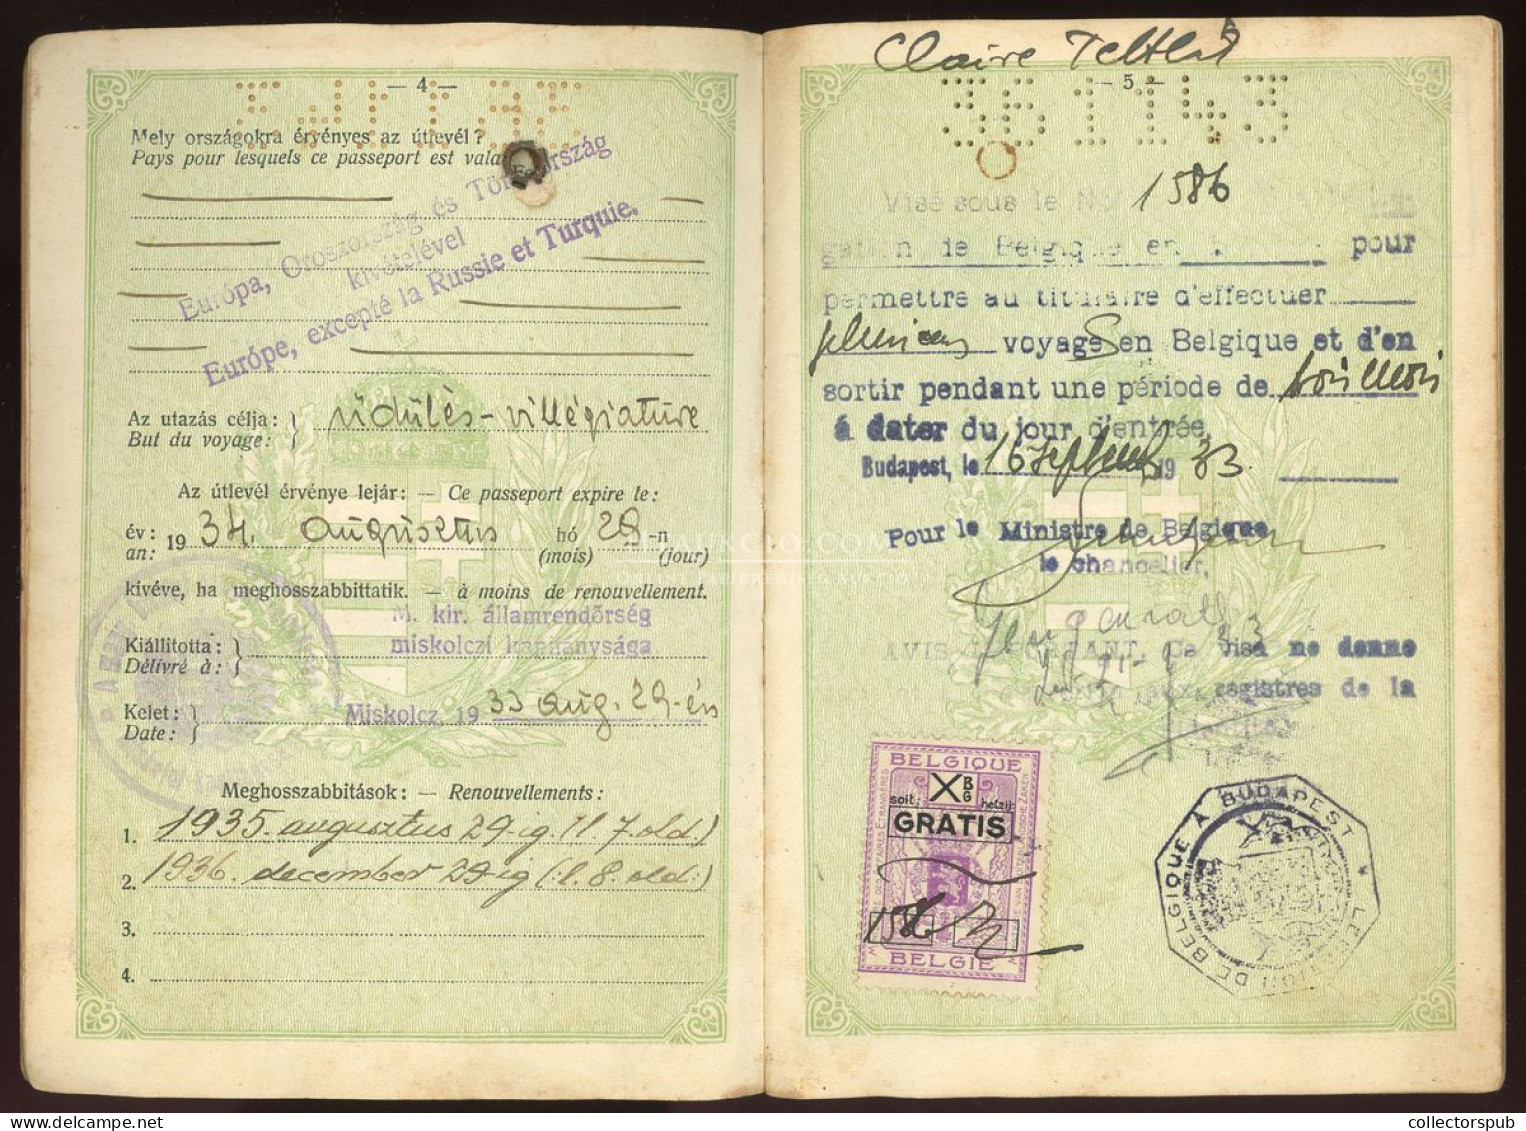 — 4 —
Mely országokra érvényes az útlevél?
Pays pour lesquels ce passeport est vala
Európa, Oroszország és Törökország
kivételével
Európe, excepté la Russie et Turquie.
Az utazás célja: üdülés - villégiature
But du voyage:
Az útlevél érvénye lejár: — Ce passeport expire le:
év: 1934. augusztus hó 29-n
an: (mois) (jour)
kivéve, ha meghosszabbittatik. — à moins de renouvellement.
M. kir. államrendőrség
Kiállította: miskolczi kapitánysága
Délivré à:
Kelet: Miskolcz, 1933 aug. 29-én
Date:
Meghosszabbitások: — Renouvellements:
1. 1935. augusztus 29-ig (l. 7. old.)
2. 1936. december 29-ig (:l. 8. old:)
3.
4.
Claire
— 5 —
361143
Visé sous le No 1586
gation de Belgique en pour
permettre au titulaire d'effectuer
plusieurs voyages en Belgique et d'en
sortir pendant une période de trois mois
á dater du jour d'entrée.
Budapest, le 16 septembre 1933.
Pour le Ministre de Belgique
le chancelier,
AVIS IMPORTANT. Ce visa ne donne
registres de la
BELGIQUE
soit: X B G hetzij:
GRATIS
1586
BELGIË
LEGATION DE BELGIQUE À BUDAPEST *
collectorspub